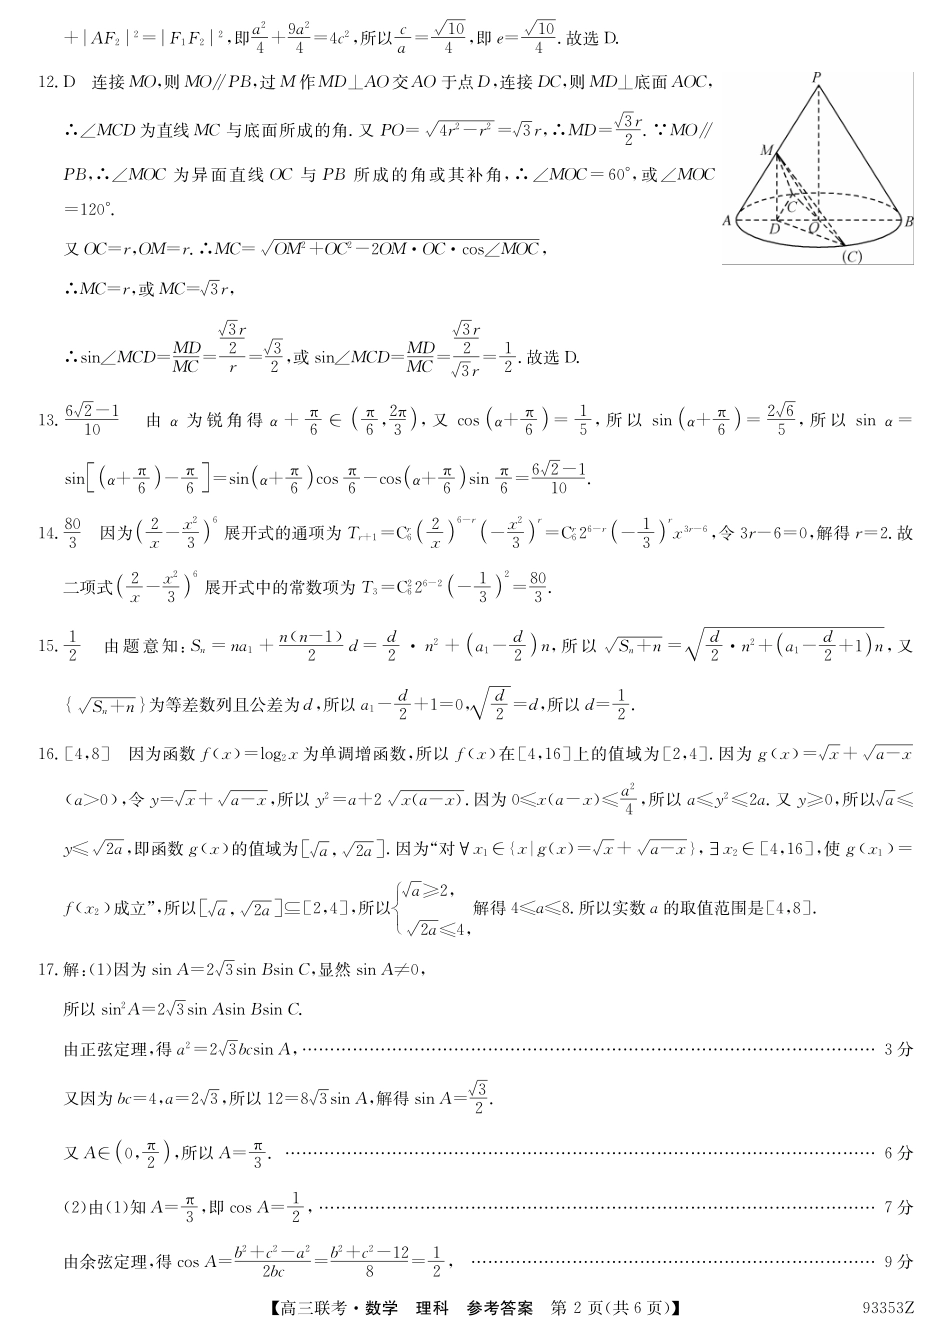 +|AF₂|²=|F₁F₂|²,即a²/4+9a²/4=4c²,所以c/a=√10/4,即 e=√10/4.故选 D.
12. D 连接 MO,则 MO∥PB,过 M 作 MD⊥AO 交 AO 于点 D,连接 DC,则 MD⊥底面 AOC,
∴∠MCD 为直线 MC 与底面所成的角. 又 PO=√(4r²-r²)=√3r,∴MD=√3r/2. ∵MO∥
PB,∴∠MOC 为异面直线 OC 与 PB 所成的角或其补角,∴∠MOC=60°,或∠MOC
=120°.
又 OC=r,OM=r. ∴MC=√(OM²+OC²-2OM·OC·cos∠MOC),
∴MC=r,或 MC=√3r,
∴sin∠MCD=MD/MC=(√3r/2)/r=√3/2,或 sin∠MCD=MD/MC=(√3r/2)/(√3r)=1/2.故选 D.
P
M
C
A
D
O
B
(C)
13. (6√2-1)/10 由 α 为锐角得 α+π/6∈(π/6,2π/3),又 cos(α+π/6)=1/5,所以 sin(α+π/6)=2√6/5,所以 sin α=
sin[(α+π/6)-π/6]=sin(α+π/6)cos π/6-cos(α+π/6)sin π/6=(6√2-1)/10.
14. 80/3 因为(2/x-x²/3)⁶展开式的通项为 Tᵣ₊₁=C₆ʳ(2/x)⁶⁻ʳ(-x²/3)ʳ=C₆ʳ2⁶⁻ʳ(-1/3)ʳx³ʳ⁻⁶,令 3r-6=0,解得 r=2. 故
二项式(2/x-x²/3)⁶展开式中的常数项为 T₃=C₆²2⁶⁻²(-1/3)²=80/3.
15. 1/2 由题意知:Sₙ=na₁+n(n-1)/2 d=d/2·n²+(a₁-d/2)n,所以 √(Sₙ+n)=√(d/2·n²+(a₁-d/2+1)n),又
{√(Sₙ+n)}为等差数列且公差为 d,所以 a₁-d/2+1=0,√(d/2)=d,所以 d=1/2.
16. [4,8] 因为函数 f(x)=log₂x 为单调增函数,所以 f(x)在[4,16]上的值域为[2,4]. 因为 g(x)=√x+√(a-x)
(a>0),令 y=√x+√(a-x),所以 y²=a+2√(x(a-x)). 因为 0≤x(a-x)≤a²/4,所以 a≤y²≤2a. 又 y≥0,所以√a≤
y≤√(2a),即函数 g(x)的值域为[√a,√(2a)]. 因为“对∀x₁∈{x|g(x)=√x+√(a-x)},∃x₂∈[4,16],使 g(x₁)=
f(x₂)成立”,所以[√a,√(2a)]⊆[2,4],所以{√a≥2,√(2a)≤4,解得 4≤a≤8. 所以实数 a 的取值范围是[4,8].
17. 解:(1)因为 sin A=2√3sin Bsin C,显然 sin A≠0,
所以 sin²A=2√3sin Asin Bsin C.
由正弦定理,得 a²=2√3bcsin A,………………………… 3 分
又因为 bc=4,a=2√3,所以 12=8√3sin A,解得 sin A=√3/2.
又 A∈(0,π/2),所以 A=π/3. ………………………… 6 分
(2)由(1)知 A=π/3,即 cos A=1/2,………………………… 7 分
由余弦定理,得 cos A=(b²+c²-a²)/2bc=(b²+c²-12)/8=1/2, ………………………… 9 分
【高三联考·数学 理科 参考答案 第 2 页(共 6 页)】 93353Z